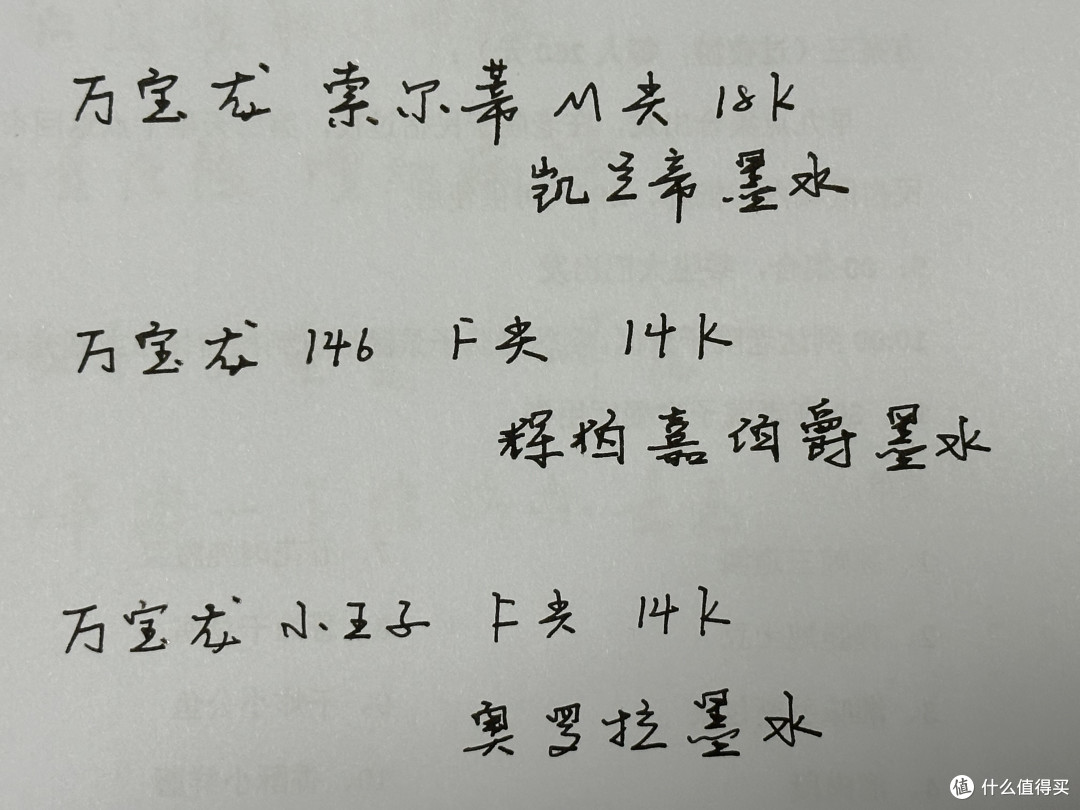 万宝龙 索尔蒂 M尖 18K
凯兰帝墨水
万宝龙 146 F尖 14K
辉柏嘉伯爵墨水
万宝龙 小王子 F尖 14K
奥罗拉墨水
值 什么值得买